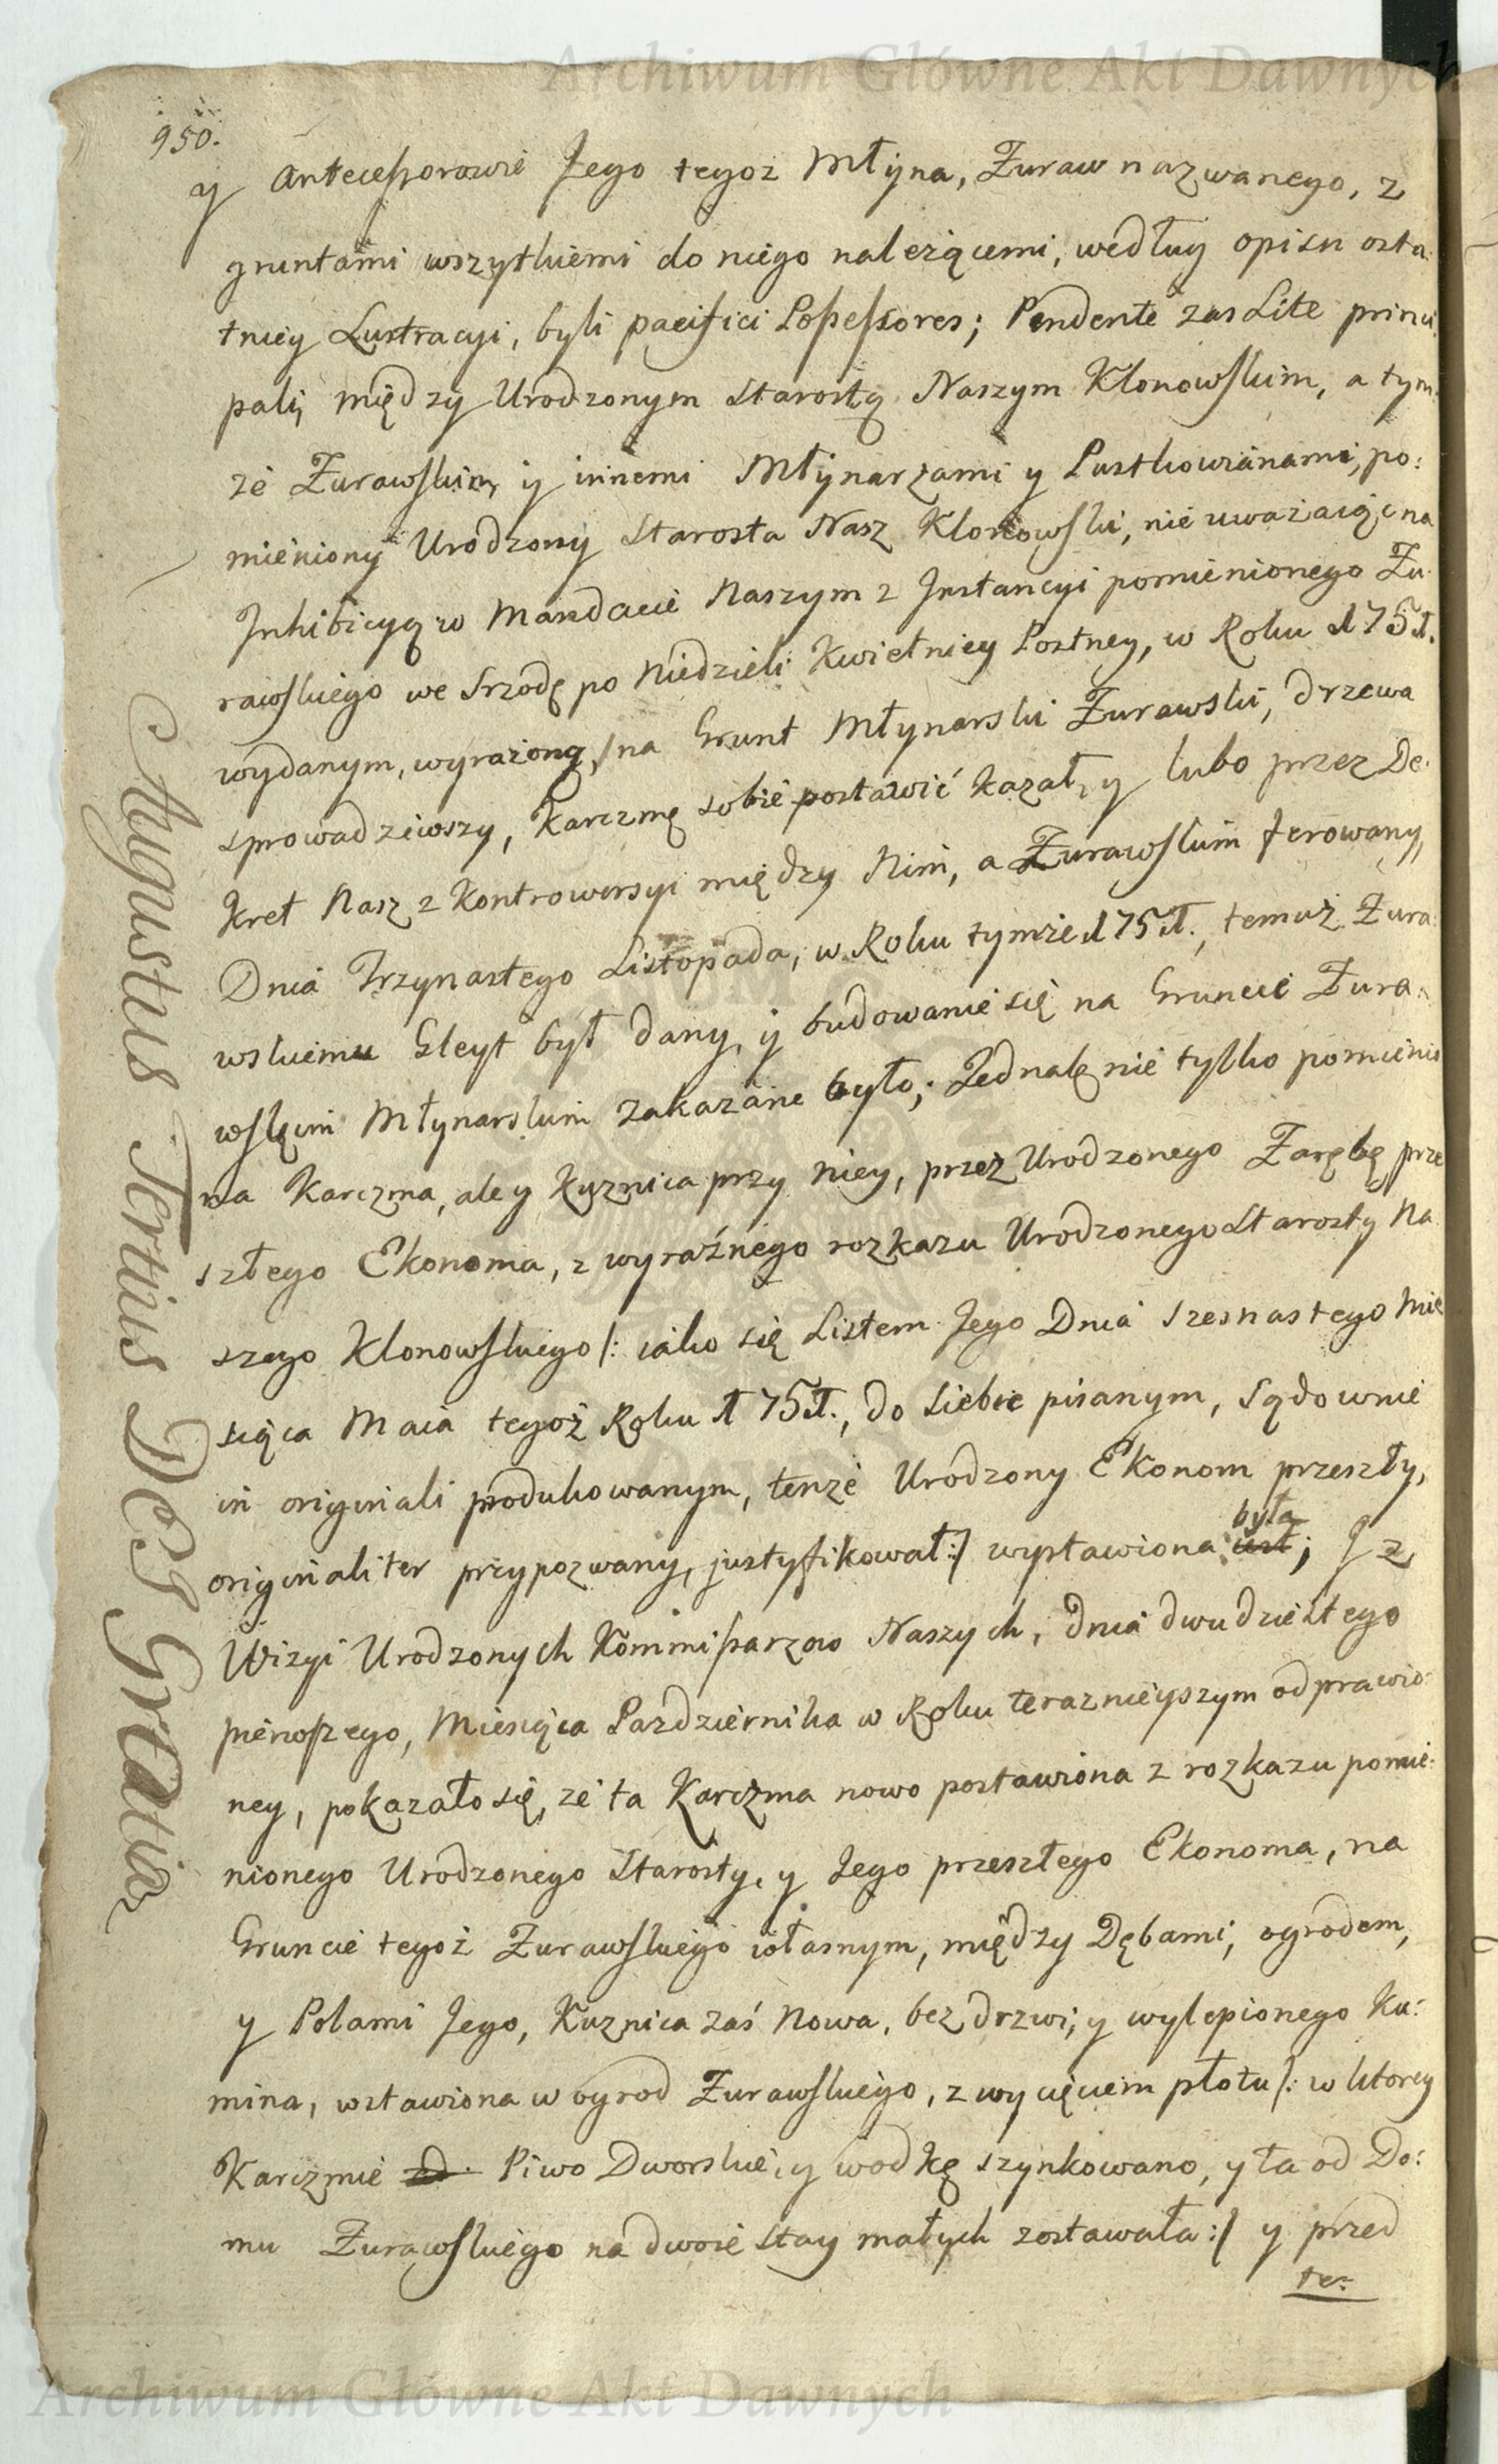 Archiwum Główne Akt Dawnych
950.
y Antecessorowie Jego tegoz Młyna, Zuraw nazwanego, z
gruntami wszytkiemi do niego naleźącemi, według opisu osta:
tniey Lustracyi, byli pacifici Possessores; Pendente zas Lite princi:
pali między Urodzonym Starostą Naszym Klonowskim, a tym:
że Zurawskim y innemi Młynarzami y Pustkowianami, po:
mieniony Urodzony Starosta Nasz Klonowski, nie uważaiąc na
Inhibicyą w Mandacie Naszym z Instancyi pomienionego Zu:
rawskiego we Srzodę po Niedzieli Kwietniey Postney, w Roku 1751.
wydanym, wyrażoną, na Grunt Młynarski Zurawski, drzewa
sprowadziwszy, Karczmę sobie postawić kazał, y lubo przez De:
kret Nasz z Kontrowersyi między Nim, a Zurawskim ferowany,
Dnia Trzynastego Listopada, w Roku tymże 1751., temuż Zura:
wskiemu Gleyt był dany, y budowanie się na Gruncie Zura:
wskim Młynarskim zakazane było; Jednak nie tylko pomienio
na Karczma, ale y Kuznica przy niey, przez Urodzonego Zarębę prze
szłego Ekonoma, z wyraźnego rozkazu Urodzonego Starosty Na
szego Klonowskiego /: iako się Listem Jego Dnia Szesnastego Mie
siąca Maia tegoż Roku 1751., do siebie pisanym, sądownie
in originali produkowanym, tenże Urodzony Ekonom przeszły,
originaliter przypozwany, justyfikował :/ wystawiona iest była; I z
Wizyi Urodzonych Kommissarzow Naszych, dnia dwudziestego
pierwszego, Miesiąca Pazdziernika w Roku teraznieyszym odprawio:
ney, pokazało się, że ta Karczma nowo postawiona z rozkazu pomie:
nionego Urodzonego Starosty, y Jego przeszłego Ekonoma, na
Gruncie tegoż Zurawskiego własnym, między Dębami, ogrodem,
y Polami Jego, Kuznica zaś Nowa, bez drzwi, y wylepionego Ku:
mina, wstawiona w ogrod Zurawskiego, z wycięciem płotu /: w ktorey
Karczmie Piwo Dworskie, y wodkę szynkowano, y ta od Do:
mu Zurawskiego na dwoie Stay małych zostawała :/ y przed
te:
Augustus Tertius DEI Gratia
Archiwum Główne Akt Dawnych